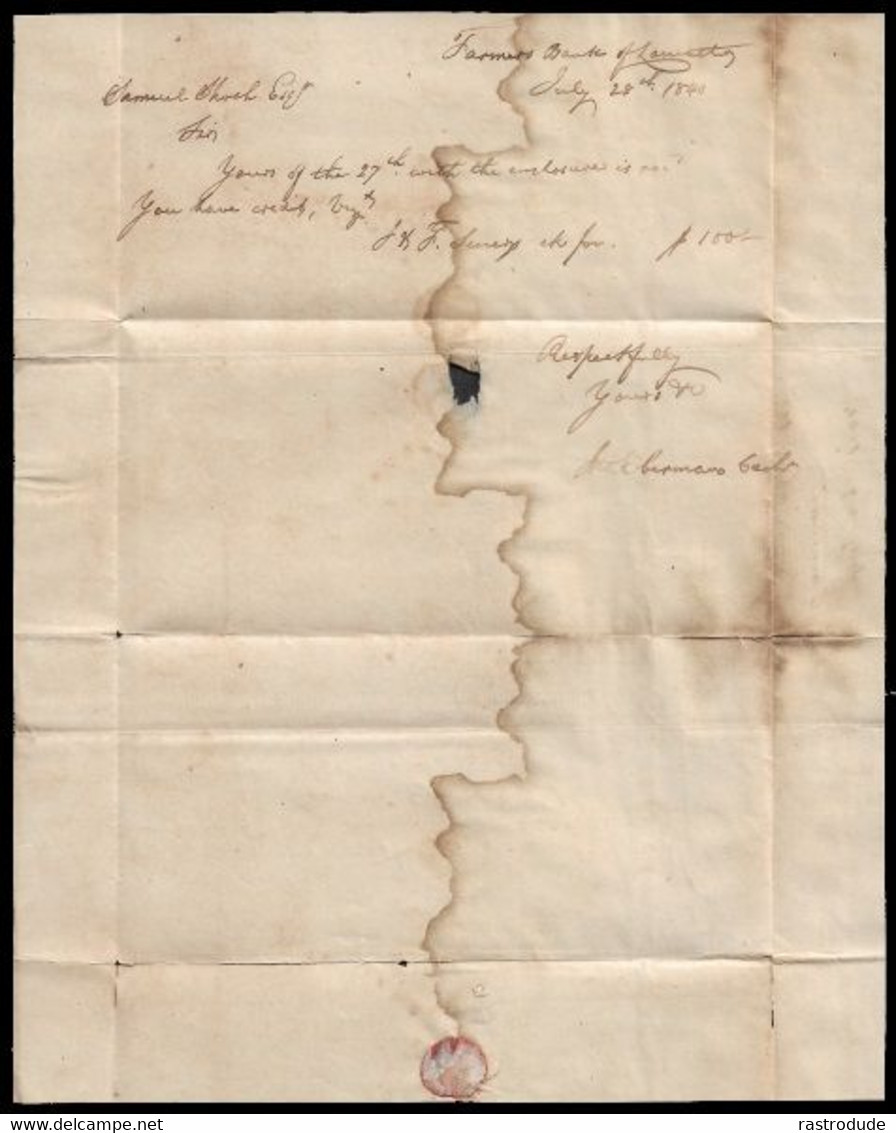 Farmers Bank of Lancaster
July 28th. 1840
Samuel Shoch Esqr
Sir
Yours of the 27th. with the enclosure is recd
You have credit, Vizt
J & F. ck for. $100-
Respectfully
Yours &c
Cashr
rastrodude